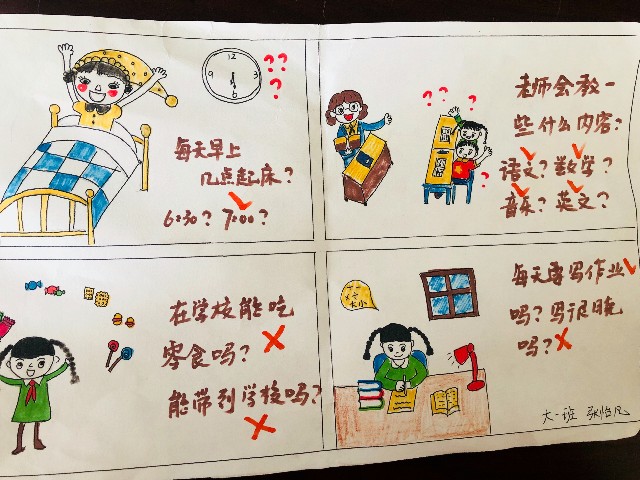 12
9
3
6
??
?
每天早上
几点起床?
6:30? 7:00?
? ?
?
老师会教一
些什么内容:
语文? 数学?
音乐? 英文?
在学校能吃
零食吗?
能带到学校吗?
每天要写作业
吗? 写很晚
吗?
大小
大一班 张怡凡